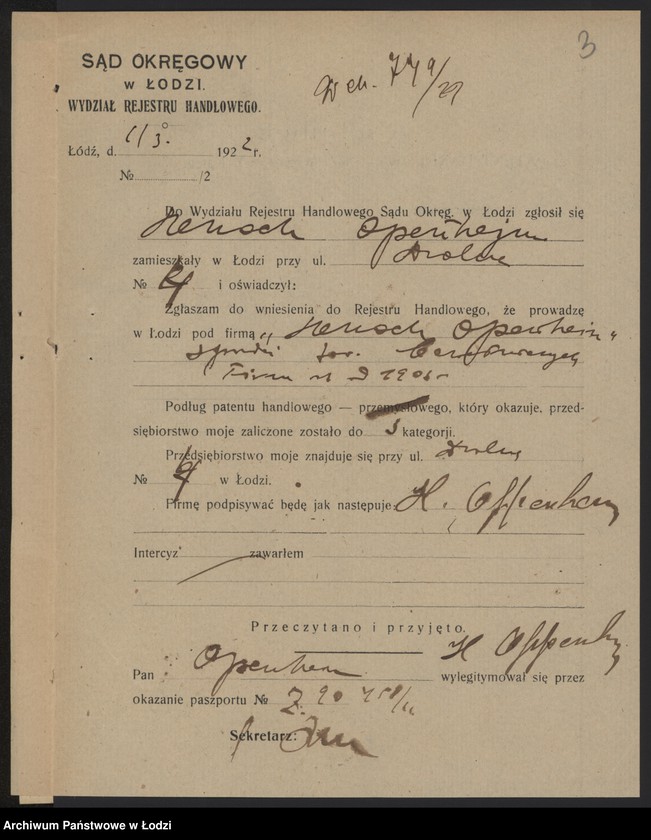 3
SĄD OKRĘGOWY
w ŁODZI.
WYDZIAŁ REJESTRU HANDLOWEGO.
Łódź, d. 1/3. 1922 r.
№ /2
Do Wydziału Rejestru Handlowego Sądu Okręg. w Łodzi zgłosił się
Hersch Openhejm
zamieszkały w Łodzi przy ul.
№ 4 i oświadczył:
Zgłaszam do wniesienia do Rejestru Handlowego, że prowadzę
w Łodzi pod firmą „Hersch Openheim"
tow.
Podług patentu handlowego — przemysłowego, który okazuje, przed-
siębiorstwo moje zaliczone zostało do 3 kategorji.
Przedsiębiorstwo moje znajduje się przy ul.
№ 4 w Łodzi.
Firmę podpisywać będę jak następuje: H. Oppenheim
Intercyz zawarłem
Przeczytano i przyjęto.
H Oppenh
Pan Openheim wylegitymował się przez
okazanie paszportu №
Sekretarz:
Archiwum Państwowe w Łodzi